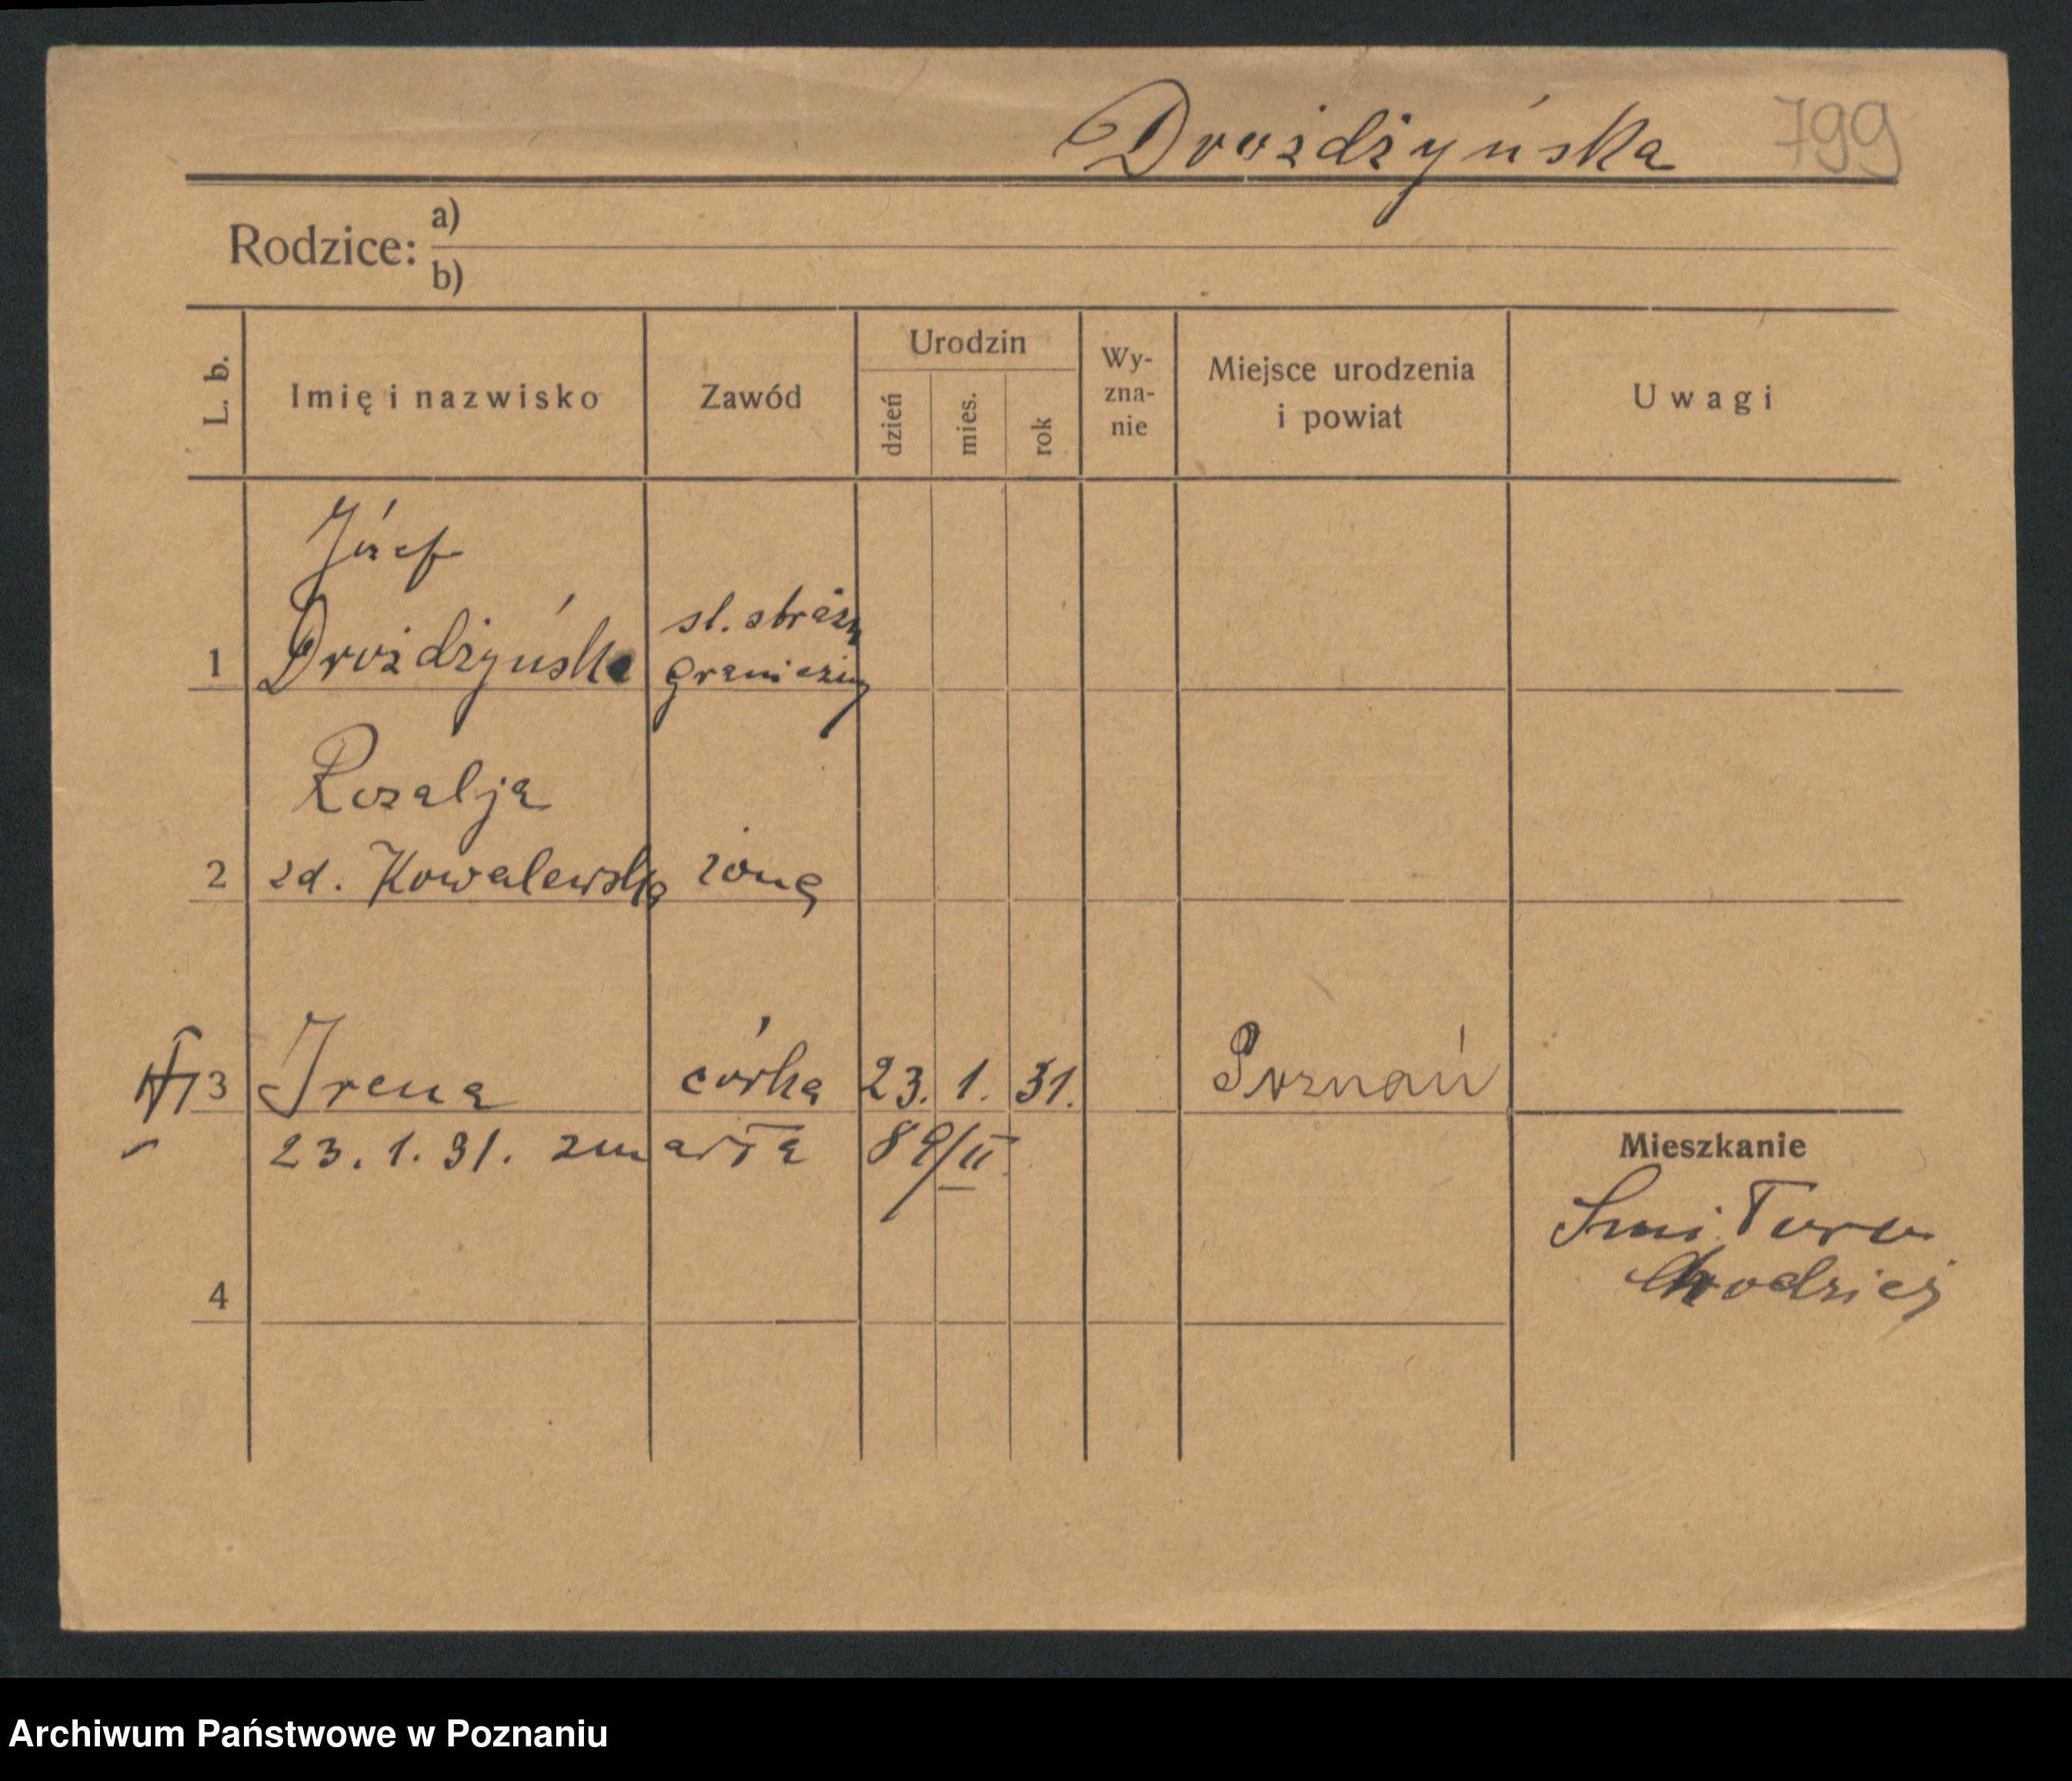 Drożdżyńska 799
Rodzice: a)
b)
L. b. Imię i nazwisko Zawód Urodzin dzień mies. rok Wy-zna-nie Miejsce urodzenia i powiat Uwagi
Józef
Drożdżyńska sł. straży
1 granicznej
Rozalja
2 zd. Kowalewska żona
3 Irena córka 23. 1. 31. Poznań
23. 1. 31. zmarła 8 9/II
Mieszkanie
Śmiłowo
Chodzież
4
Archiwum Państwowe w Poznaniu